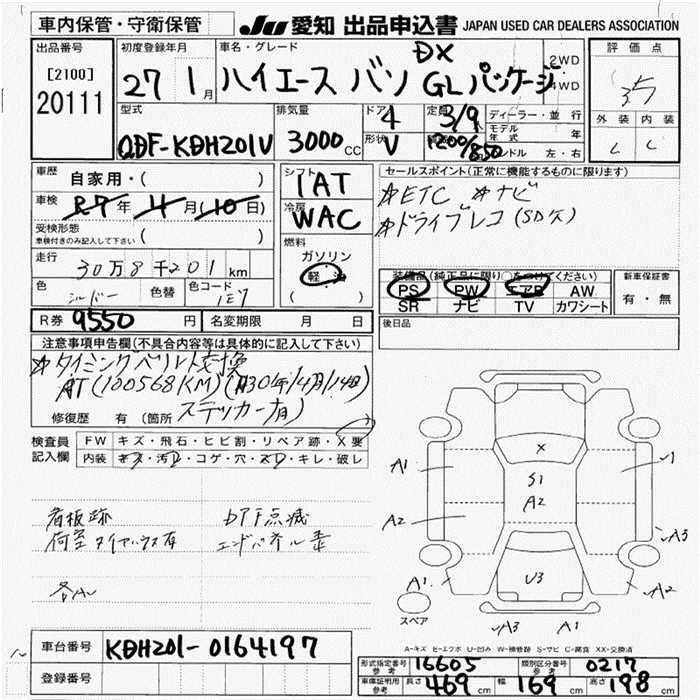 車内保管・守衛保管 JU 愛知 出品申込書 JAPAN USED CAR DEALERS ASSOCIATION
出品番号
[2100]
20111
初度登録年月
27 1月
車名・グレード
DX
ハイエース バン GLパッケージ
2WD
4WD
評価点
3.5
外装 内装
C C
型式
QDF-KDH201V
排気量
3000cc
ドア 4
形状 V
定員 3/9
1200/850
ディーラー・並行
モデル年式 年
ハンドル 左・右
車歴
自家用・( )
車検
R7年 4月(10日)
受検形態
車検付きのみ記入して下さい ( )
走行
30万8千201km
色
シルバー
色替
色コード
1E7
シフト
IAT
冷房
WAC
燃料
ガソリン
軽油
( )
セールスポイント(正常に機能するものに限ります)
☆ETC ☆ナビ
☆ドライブレコ(SD欠)
装備品(純正品に限り○をつけてください)
PS PW エアB AW
SR ナビ TV カワシート
新車保証書
有・無
R券 9550円
名変期限 月 日
後日品
注意事項申告欄(不具合内容等は具体的に記入して下さい)
☆タイミングベルト交換
AT(100568KM)(H30年1月14日)
ステッカー有)
修復歴 有(箇所
検査員記入欄
FW キズ・飛石・ヒビ割・リペア跡・X要
内装 キズ・汚レ・コゲ・穴・スレ・キレ・破レ
看板跡 DPF点滅
荷室タイヤハウス有 エンドパネル
各AU
X
S1
A2
U3
A1
A2
A1
A3
A1
A2
A3
スペア
A-キズ E-エクボ U-凹み W-補修跡 S-サビ C-腐食 XX-交換済
車台番号
KDH201-0164197
登録番号
形式指定番号 参考 16605
類別区分番号 参考 0217
車庫証明用 参考 長さ 469cm 幅 169cm 高さ 198cm